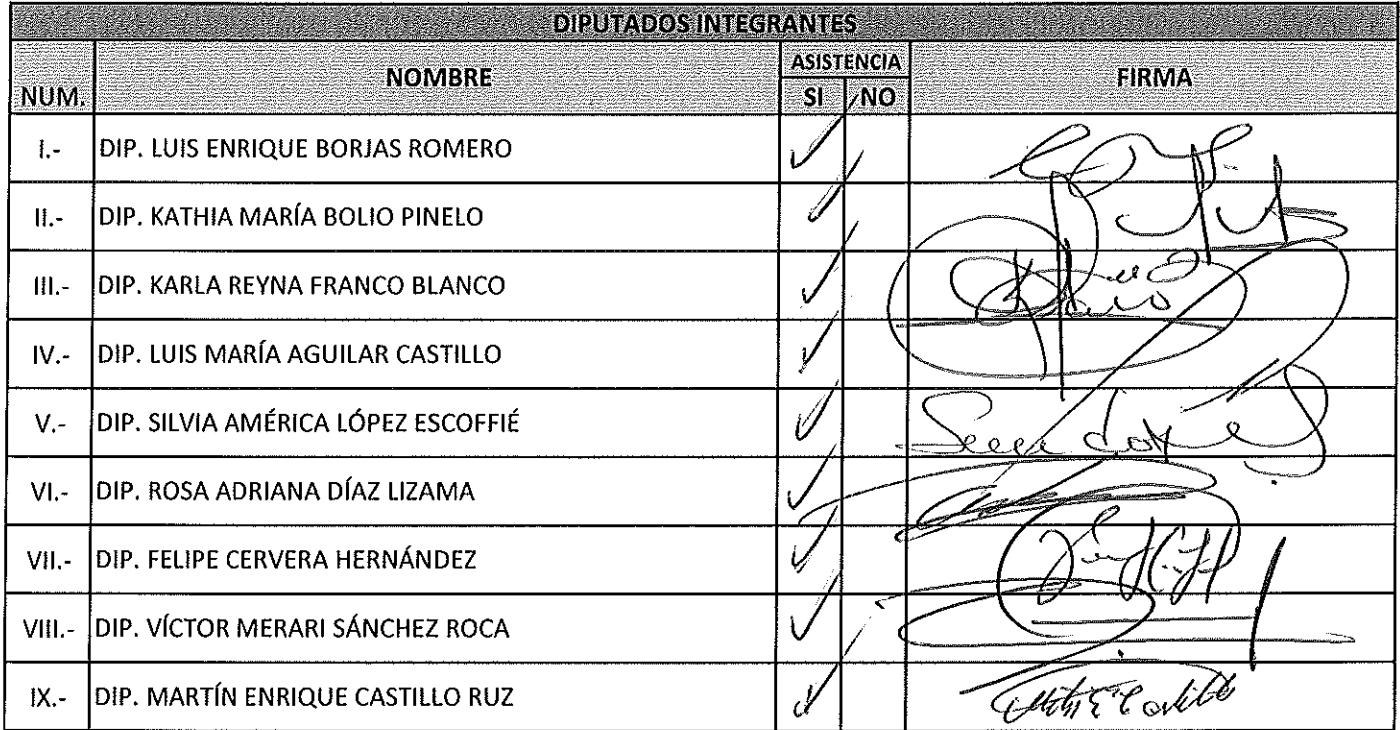 DIPUTADOS INTEGRANTES
NUM. NOMBRE ASISTENCIA FIRMA
SI NO
I.- DIP. LUIS ENRIQUE BORJAS ROMERO ✓
II.- DIP. KATHIA MARÍA BOLIO PINELO ✓
III.- DIP. KARLA REYNA FRANCO BLANCO ✓
IV.- DIP. LUIS MARÍA AGUILAR CASTILLO ✓
V.- DIP. SILVIA AMÉRICA LÓPEZ ESCOFFIÉ ✓
VI.- DIP. ROSA ADRIANA DÍAZ LIZAMA ✓
VII.- DIP. FELIPE CERVERA HERNÁNDEZ ✓
VIII.- DIP. VÍCTOR MERARI SÁNCHEZ ROCA ✓
IX.- DIP. MARTÍN ENRIQUE CASTILLO RUZ ✓